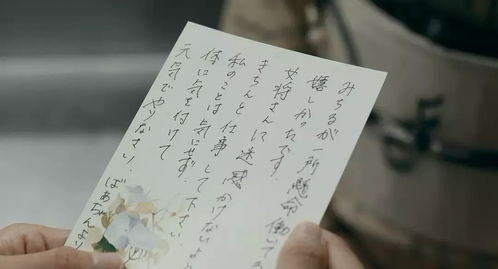 みちるが一所懸命働いてる
嬉しかったです。
女将さんに迷惑かけないよう
きちんと仕事して下さい
私のことは気にせず、
体に気を付けて
元気でやりなさい。
ばあちゃんより